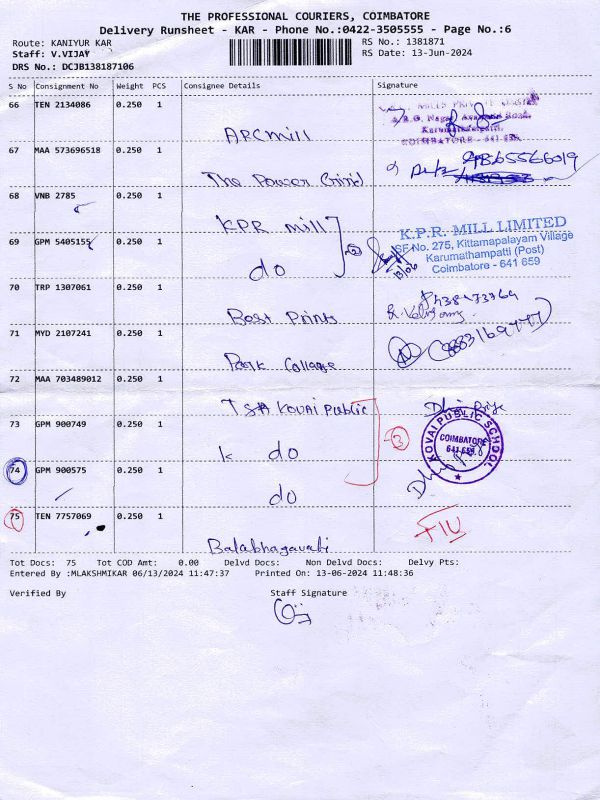 THE PROFESSIONAL COURIERS, COIMBATORE
Delivery Runsheet - KAR - Phone No.:0422-3505555 - Page No.:6
Route: KANIYUR KAR
Staff: V.VIJAY
DRS No.: DCJB138187106
RS No.: 1381871
RS Date: 13-Jun-2024
S No Consignment No Weight PCS Consignee Details Signature
66 TEN 2134086 0.250 1
APC mill
COIMBATORE - 641 659
67 MAA 573696518 0.250 1
The Power Grind
9865566019
68 VNB 2785 0.250 1
KPR mill
69 GPM 5405155 0.250 1
do
2
13/06
K.P.R. MILL LIMITED
SF No. 275, Kittamapalayam Village
Karumathampatti (Post)
Coimbatore - 641 659
70 TRP 1307061 0.250 1
Best Prints
71 MYD 2107241 0.250 1
Park College
72 MAA 703489012 0.250 1
TSA KOVAI Public
73 GPM 900749 0.250 1
do
3
KOVAI PUBLIC SCHOOL
COIMBATORE
641 659
74 GPM 900575 0.250 1
do
75 TEN 7757069 0.250 1
Balabhagavathi
Tot Docs: 75 Tot COD Amt: 0.00 Delvd Docs: Non Delvd Docs: Delvy Pts:
Entered By :MLAKSHMIKAR 06/13/2024 11:47:37 Printed On: 13-06-2024 11:48:36
Verified By Staff Signature